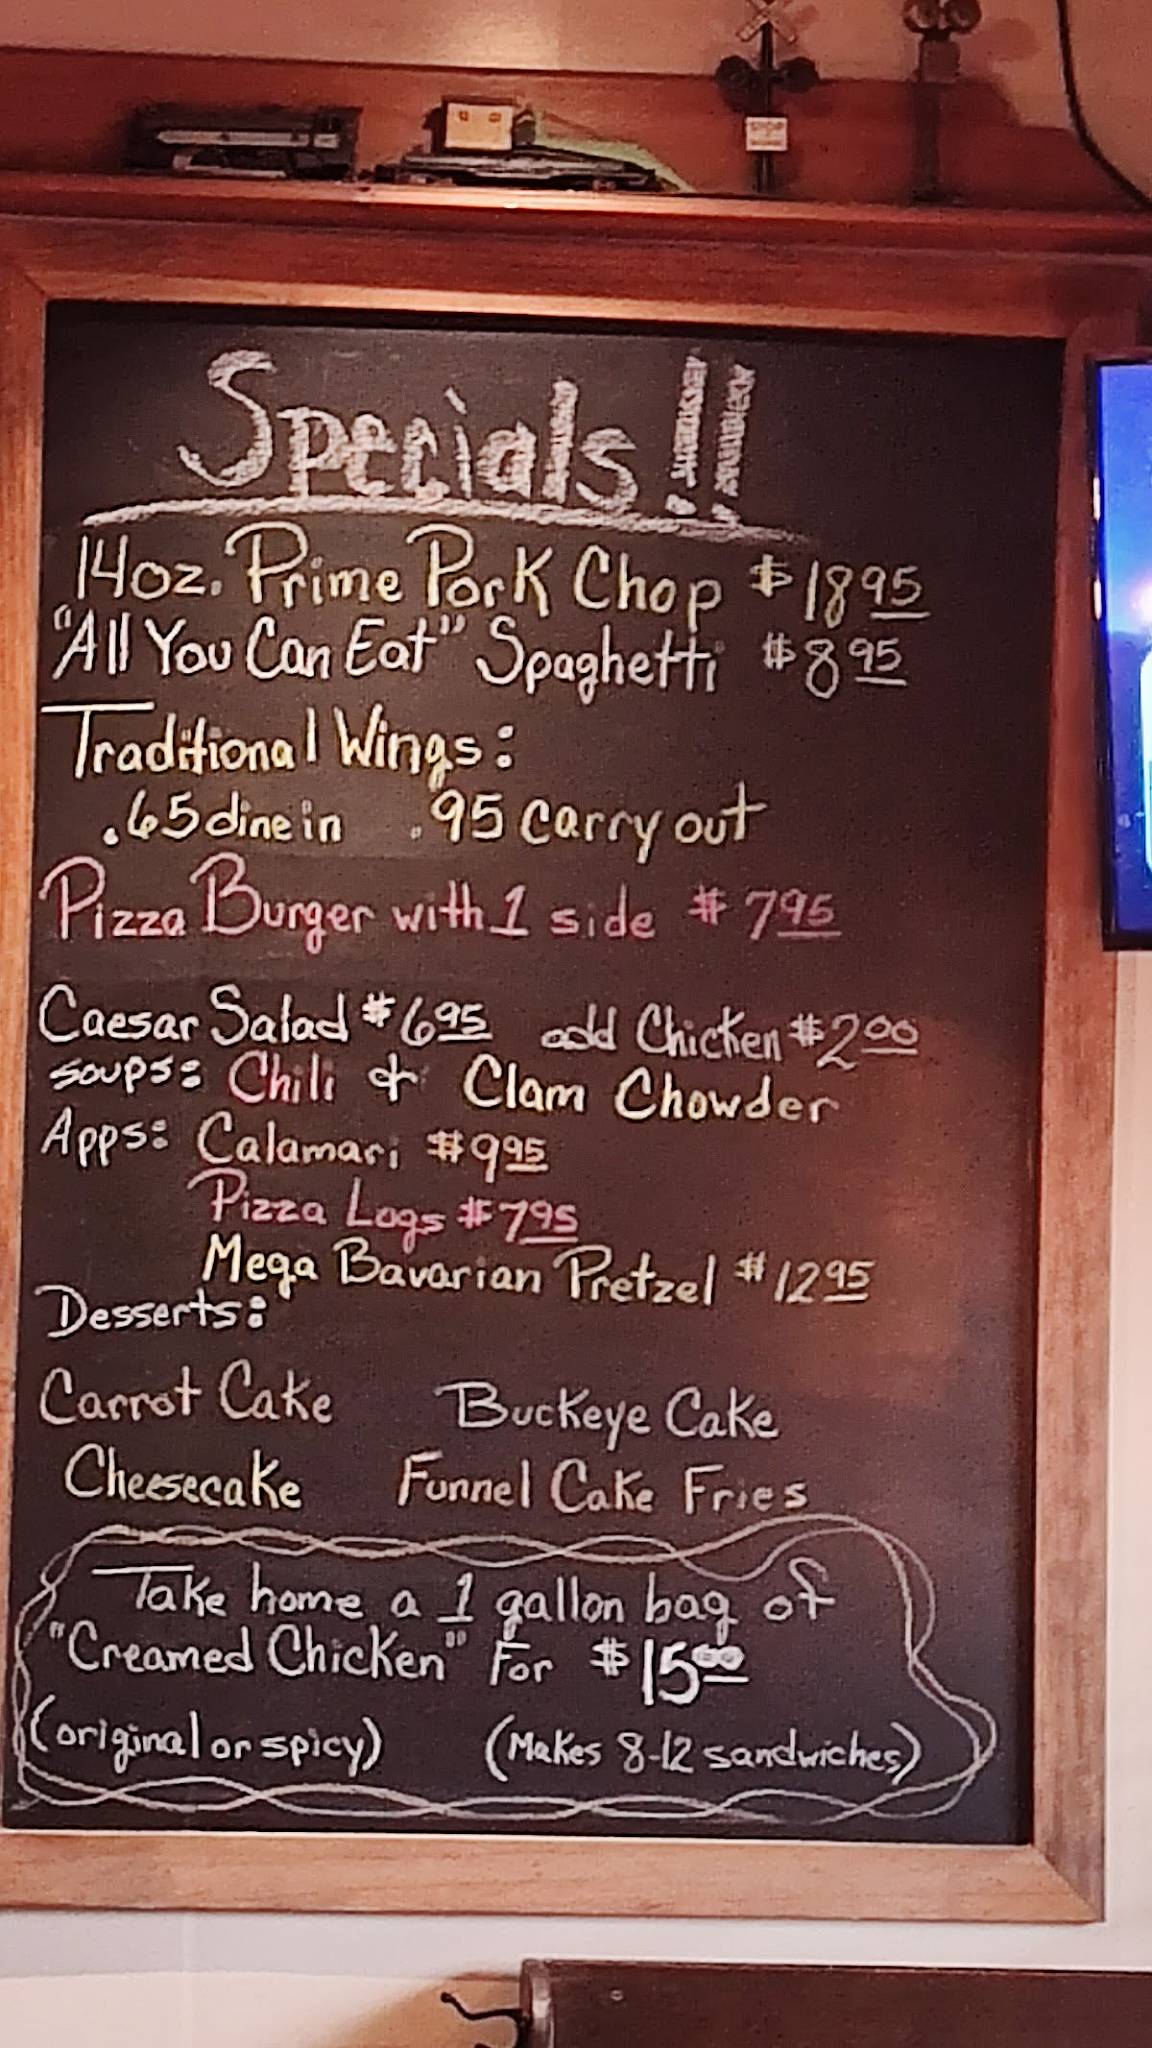 STOP
Specials!!
14oz. Prime Pork Chop $18.95
"All You Can Eat" Spaghetti $8.95
Traditional Wings:
.65 dine in .95 carry out
Pizza Burger with 1 side $7.95
Caesar Salad $6.95 add Chicken $2.00
soups: Chili & Clam Chowder
Apps: Calamari $9.95
Pizza Logs $7.95
Mega Bavarian Pretzel $12.95
Desserts:
Carrot Cake Buckeye Cake
Cheesecake Funnel Cake Fries
Take home a 1 gallon bag of
"Creamed Chicken" For $15.00
(original or spicy) (Makes 8-12 sandwiches)